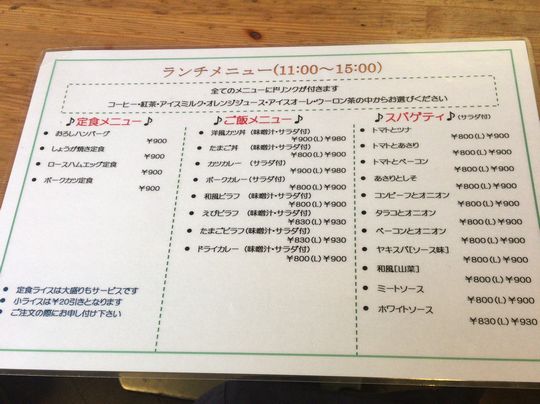 ランチメニュー(11:00～15:00)
全てのメニューにドリンクが付きます
コーヒー・紅茶・アイスミルク・オレンジジュース・アイスオーレ・ウーロン茶の中からお選びください
♪定食メニュー♪
おろしハンバーグ
￥900
しょうが焼き定食
￥900
ロースハムエッグ定食
￥900
ポークカツ定食
￥900
定食ライスは大盛りもサービスです
小ライスは￥20引きとなります
ご注文の際にお申し付け下さい
♪ご飯メニュー♪
洋風カツ丼 (味噌汁・サラダ付)
￥900(L)￥980
たまご丼 (味噌汁・サラダ付)
￥800(L)￥900
カツカレー (サラダ付)
￥900(L)￥980
ポークカレー(サラダ付)
￥800(L)￥900
和風ピラフ (味噌汁・サラダ付)
￥800(L)￥900
えびピラフ (味噌汁・サラダ付)
￥830(L)￥930
たまごピラフ(味噌汁・サラダ付)
￥830(L)￥930
ドライカレー (味噌汁・サラダ付)
￥800(L)￥900
♪スパゲティ♪(サラダ付)
トマトとツナ
￥800(L)￥900
トマトとあさり
￥800(L)￥900
トマトとベーコン
￥800(L)￥900
あさりとしそ
￥800(L)￥900
コンビーフとオニオン
￥800(L)￥900
タラコとオニオン
￥800(L)￥900
ベーコンとオニオン
￥800(L)￥900
ヤキスパ[ソース味]
￥800(L)￥900
和風[山菜]
￥800(L)￥900
ミートソース
￥800(L)￥900
ホワイトソース
￥830(L)￥930